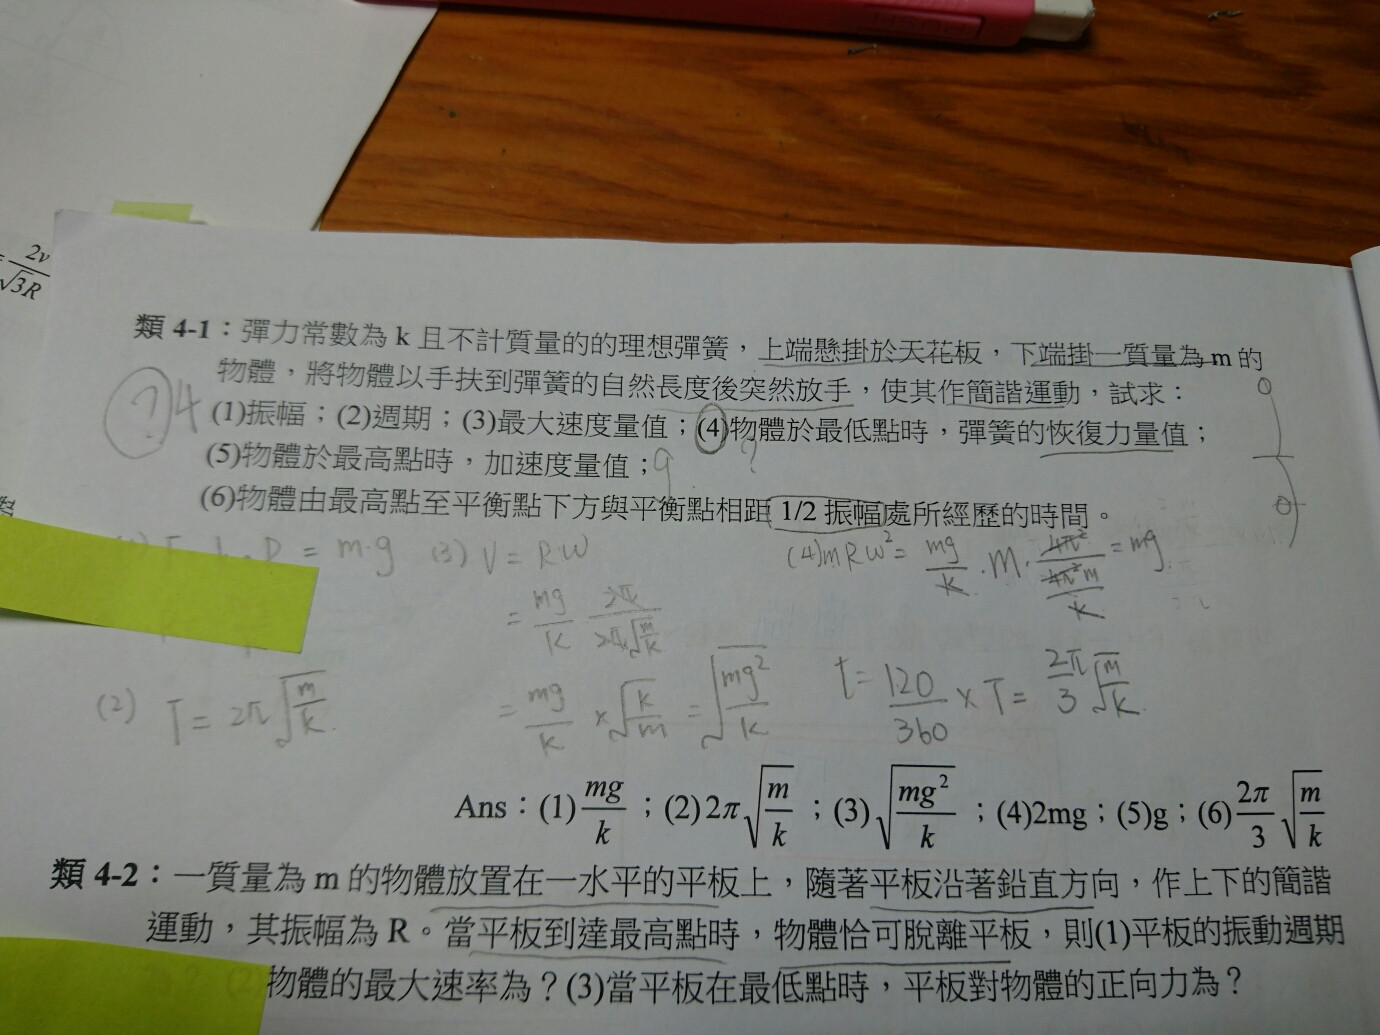 2v
√3R
類 4-1：彈力常數為 k 且不計質量的的理想彈簧，上端懸掛於天花板，下端掛一質量為 m 的
物體，將物體以手扶到彈簧的自然長度後突然放手，使其作簡諧運動，試求：
? 4
(1)振幅；(2)週期；(3)最大速度量值；(4)物體於最低點時，彈簧的恢復力量值；
(5)物體於最高點時，加速度量值； g ?
(6)物體由最高點至平衡點下方與平衡點相距 1/2 振幅處所經歷的時間。
= m·g
(3) V = Rω
= mg/k · 2π/(2π√(m/k))
= mg/k × √(k/m) = √(mg²/k)
(4) mRω² = mg/k · m · 4π²/(4π²m/k) = mg
(2) T = 2π√(m/k)
t = 120/360 × T = 2π/3 √(m/k)
Ans：(1) mg/k；(2) 2π√(m/k)；(3) √(mg²/k)；(4)2mg；(5)g；(6) 2π/3 √(m/k)
類 4-2：一質量為 m 的物體放置在一水平的平板上，隨著平板沿著鉛直方向，作上下的簡諧
運動，其振幅為 R。當平板到達最高點時，物體恰可脫離平板，則(1)平板的振動週期
(2)物體的最大速率為？(3)當平板在最低點時，平板對物體的正向力為？